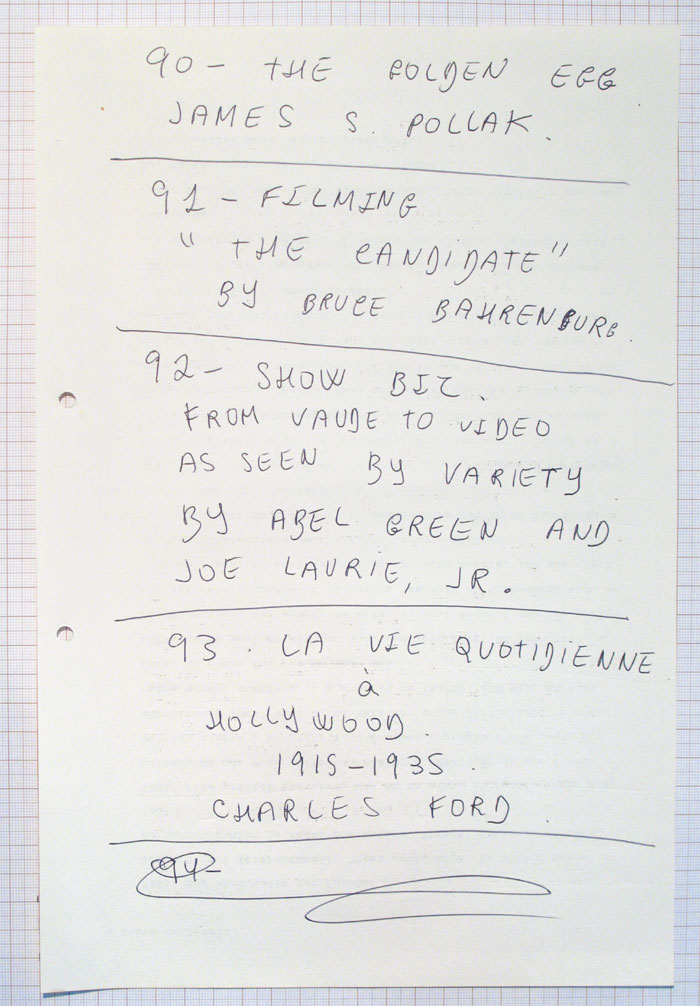 90- THE GOLDEN EGG
JAMES S. POLLAK.
91- FILMING
"THE CANDIDATE"
BY BRUCE BAHRENBURG.
92- SHOW BIZ.
FROM VAUDE TO VIDEO
AS SEEN BY VARIETY
BY ABEL GREEN AND
JOE LAURIE, JR.
93. LA VIE QUOTIDIENNE
à
HOLLYWOOD
1915-1935
CHARLES FORD.
94-